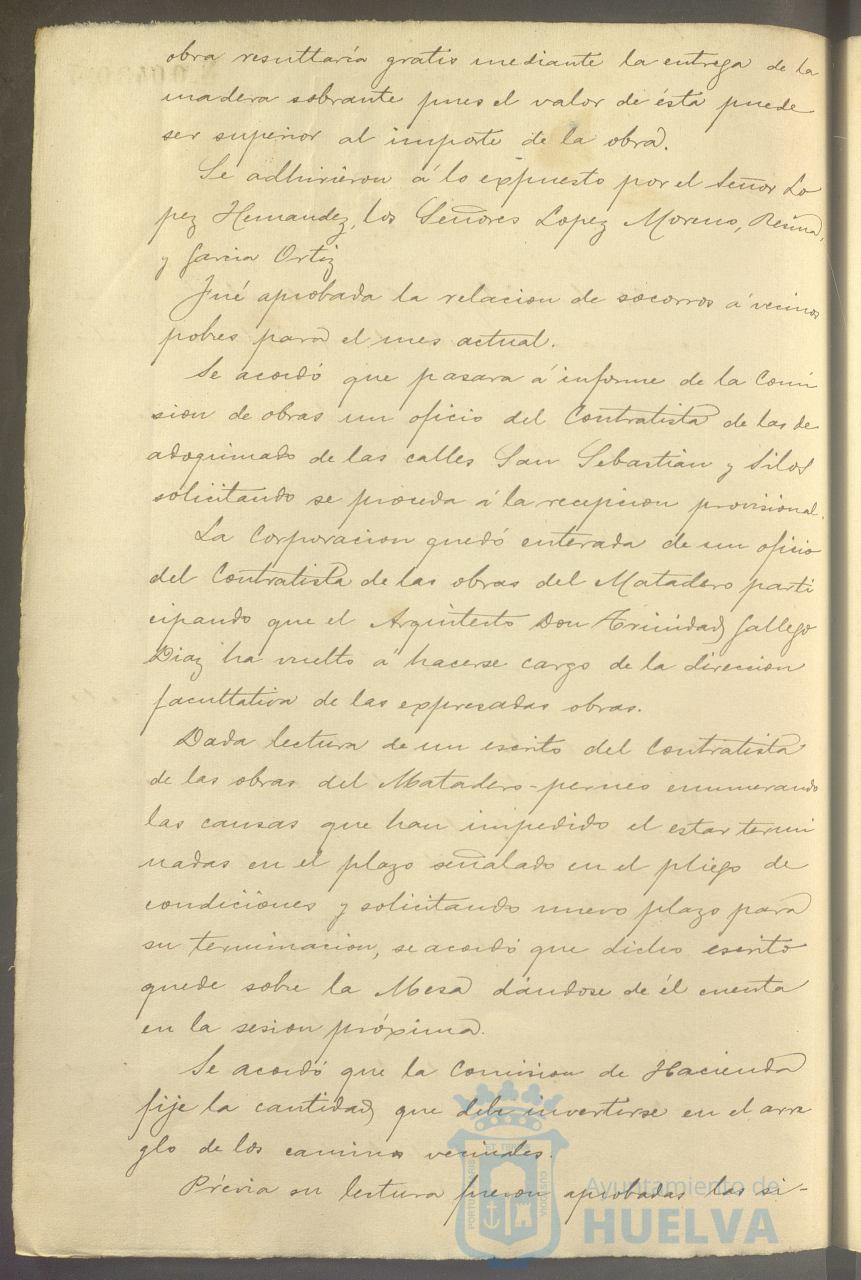 obra resultaría gratis mediante la entrega de la
madera sobrante pues el valor de ésta puede
ser superior al importe de la obra.
Se adhirieron á lo expuesto por el Señor Lo
pez Hernandez, los Señores Lopez Moreno, Resina,
y Garcia Ortiz
Fué aprobada la relacion de socorros á vecinos
pobres para el mes actual.
Se acordó que pasara á informe de la Comi
sion de obras un oficio del Contratista de las de
adoquinado de las calles San Sebastian y Silos
solicitando se proceda á la recepcion provisional.
La Corporacion quedó enterada de un oficio
del Contratista de las obras del Matadero parti
cipando que el Arquitecto Don Trinidad Gallego
Diaz ha vuelto á hacerse cargo de la direccion
facultativa de las expresadas obras.
Dada lectura de un escrito del Contratista
de las obras del Matadero-perneo enumerando
las causas que han impedido el estar termi
nadas en el plazo señalado en el pliego de
condiciones y solicitando nuevo plazo para
su terminacion, se acordó que dicho escrito
quede sobre la Mesa dándose de él cuenta
en la sesion próxima.
Se acordó que la Comision de Hacienda
fije la cantidad que debe invertirse en el arre
glo de los caminos vecinales.
Prévia su lectura fueron aprobadas las si-
Ayuntamiento de
HUELVA